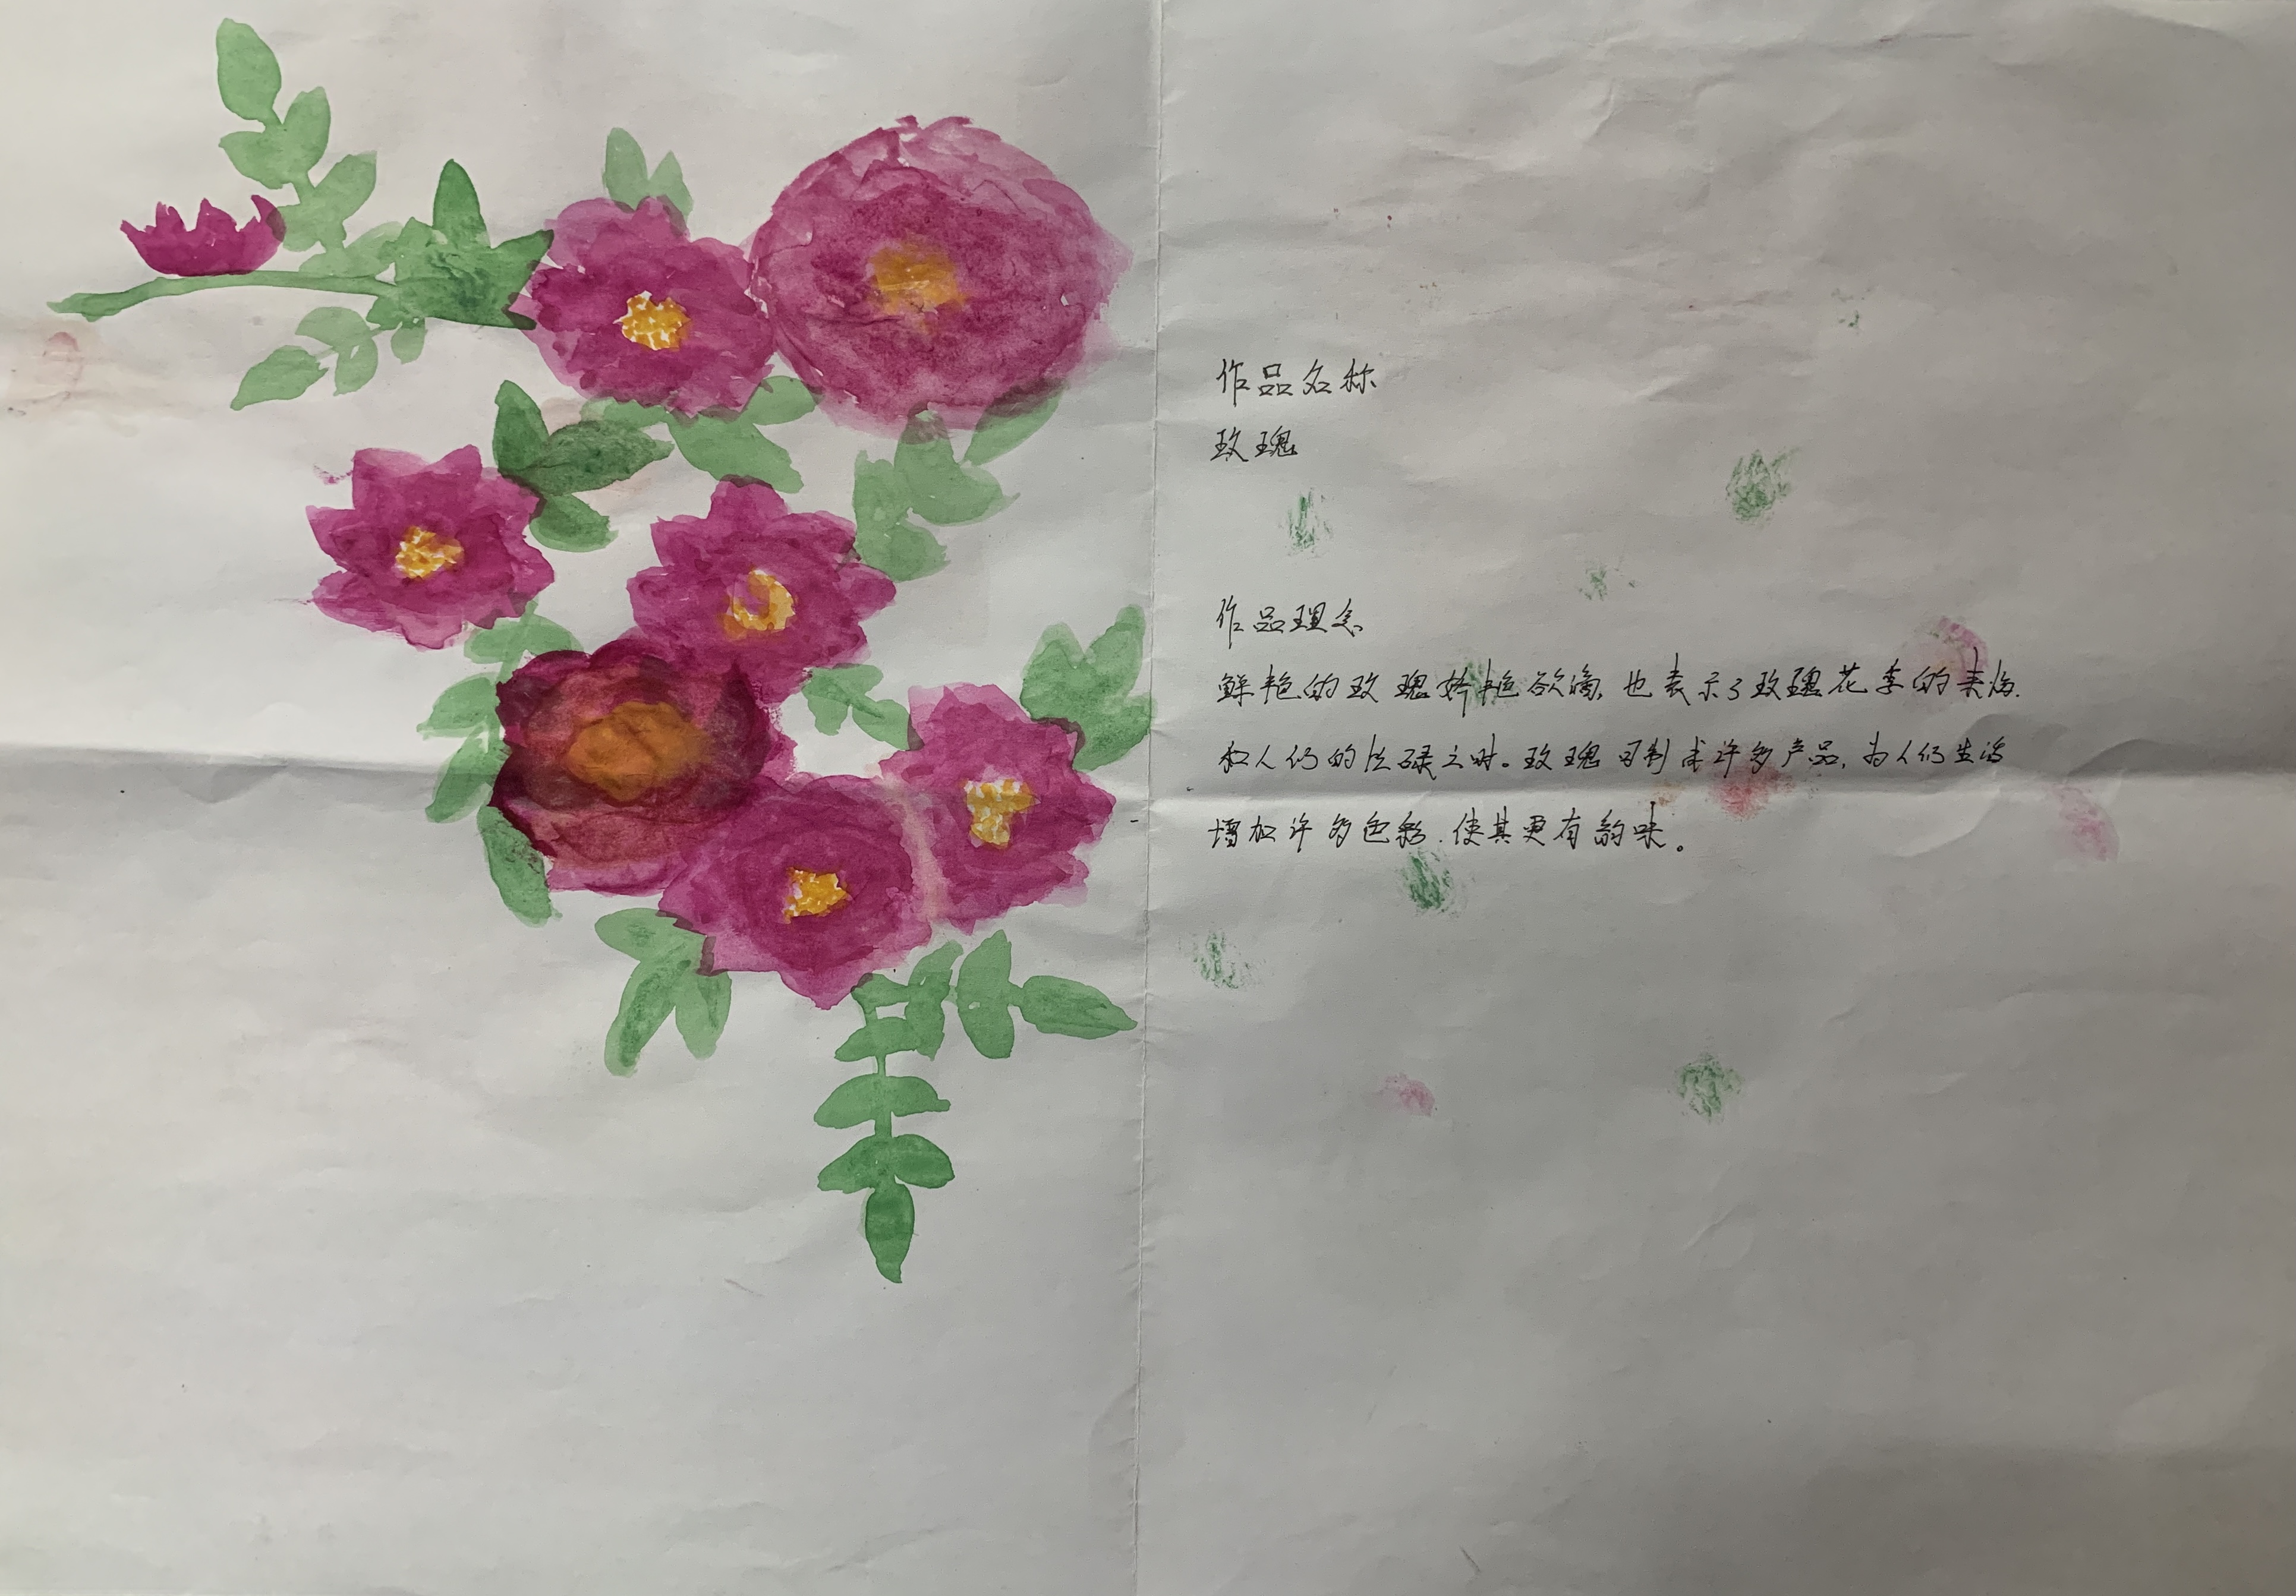 作品名称
玫瑰
作品理念
鲜艳的玫瑰娇艳欲滴,也表示了玫瑰花季的来临.
和人们的忙碌之时。玫瑰可制成许多产品,为人们生活
增加许多色彩.使其更有韵味。